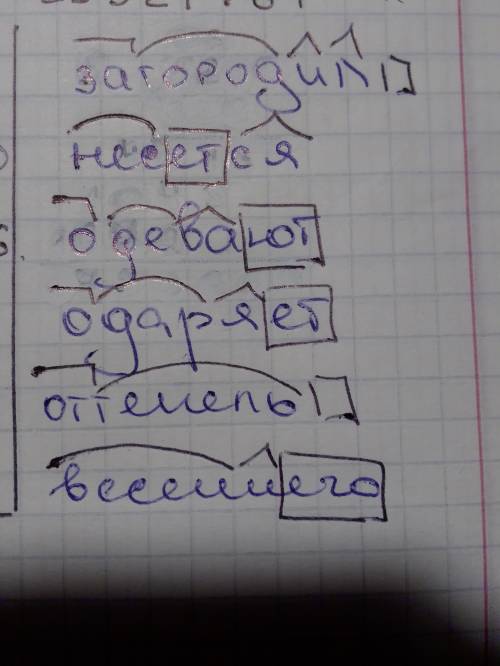 загородил
несется
одевают
одаряет
оттепель
весеннего